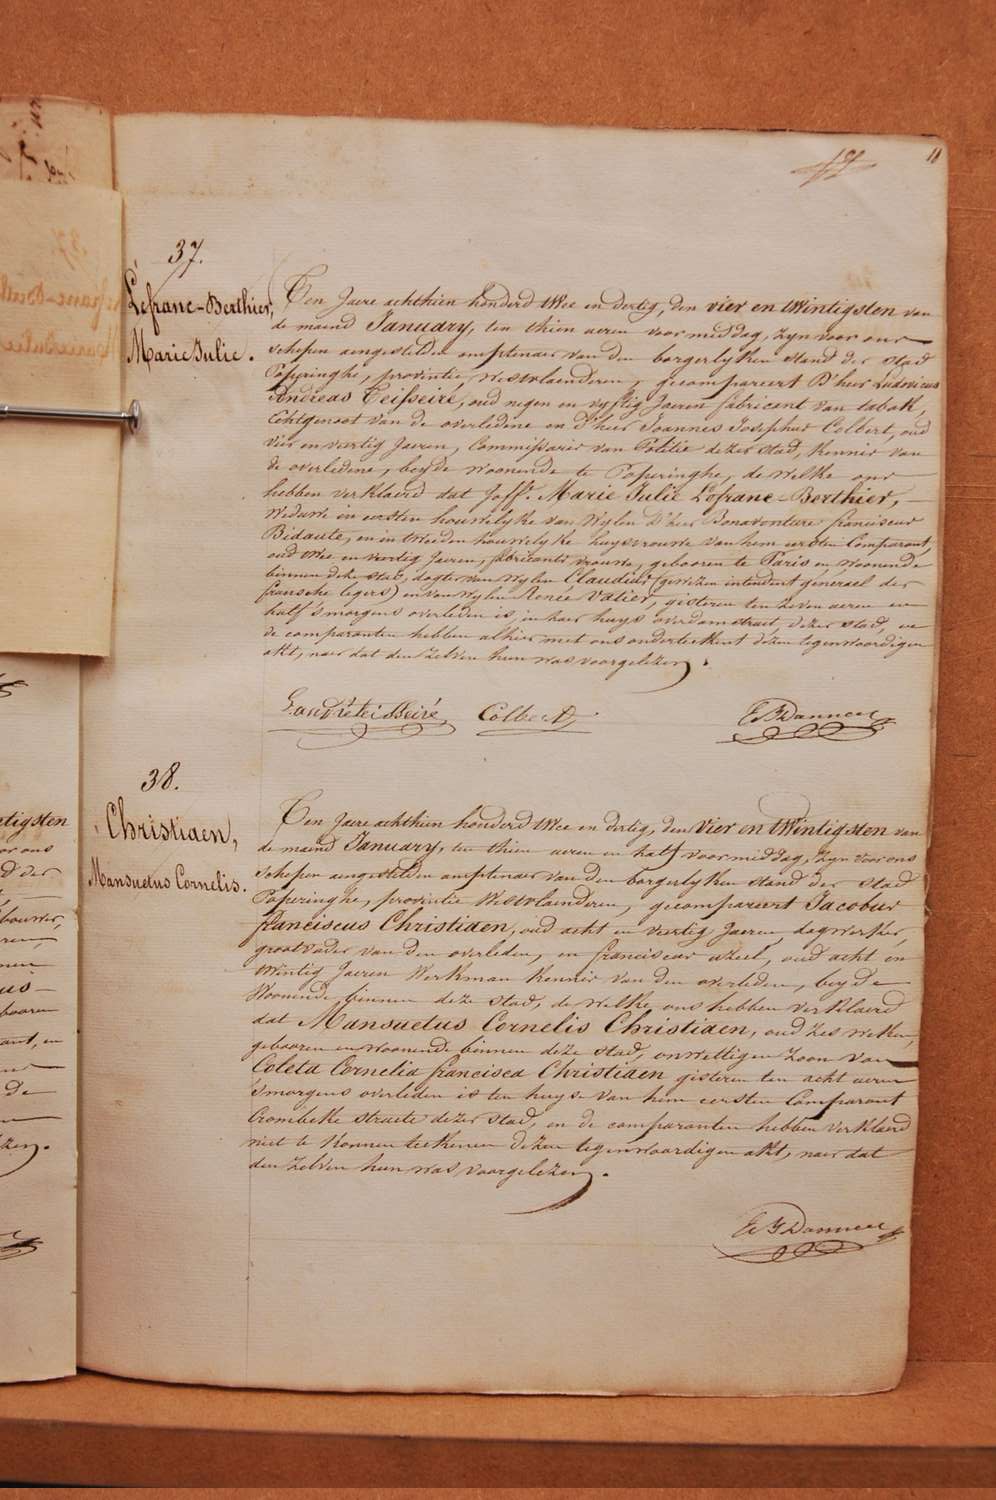 11
37.
Lefranc-Berthier,
Marie Julie.
Ten Jaere achthien honderd twee en dertig, den vier en twintigsten van
de maend January, ten thien ueren voormiddag, zyn voor ons
schepen aengestelden amptenaer van den borgerlyken stand der stad
Poperinghe, provintie Westvlaenderen, gecompareert D'heer Ludovicus
Andreas Teisseiré, oud negen en vyftig Jaeren fabricant van tabak,
Echtgenoot van de overledene en D'heer Joannes Josephus Colbert, oud
vier en veertig Jaeren, Commissaris van Politie dezer stad, kennis van
de overledene, beyde woonende te Poperinghe, de welke ons
hebben verklaerd dat Joffe. Marie Julie Lefranc-Berthier,
Weduwe in eersten houwelyke van wylen D'heer Bonaventure franciscus
Bidaute, en in tweeden houwelyke huysvrouwe van hem eersten Comparant,
oud twee en veertig Jaeren, fabricants vrouwe, gebooren te Paris en woonende
binnen deze stad, dogter van wylen Claudius (gewezen intendent generael der
fransche legers) en van wylen Renée Valier, gisteren ten zeven ueren een
half 's morgens overleden is, in haer huys overdamstraet, dezer stad, en
de comparanten hebben alhier met ons onderteekent dezen tegenwoordigen
akt, naer dat den zelven hun was voorgelezen.
L. andré teisseiré Colbert
38.
Christiaen,
Mansuetus Cornelis.
Ten Jaere achthien honderd twee en dertig, den vier en twintigsten van
de maend January, ten thien ueren en half voormiddag, zyn voor ons
schepen aengestelden amptenaer van den borgerlyken stand der stad
Poperinghe, provintie Westvlaenderen, gecompareert Jacobus
franciscus Christiaen, oud acht en veertig Jaeren, dagwerker,
grootvader van den overleden, en franciscus azeel, oud acht en
twintig Jaeren Werkman kennis van den overleden, beyde
Woonende binnen deze stad, de welke ons hebben verklaerd
dat Mansuetus Cornelis Christiaen, oud zes weken,
gebooren en woonende binnen deze stad, onwettigen zoon van
Coleta Cornelia francisca Christiaen gisteren ten acht ueren
s'morgens overleden is ten huyse van hem eersten Comparant
Crombeke straete dezer stad, en de comparanten hebben verklaerd
niet te konnen teekenen dezen tegenwoordigen akt, naer dat
den zelven hun was voorgelezen.